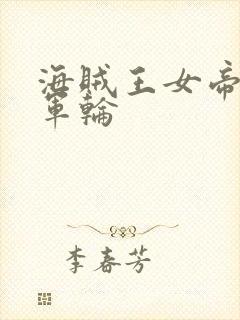 海賊王女帝
軍輪
李春芳